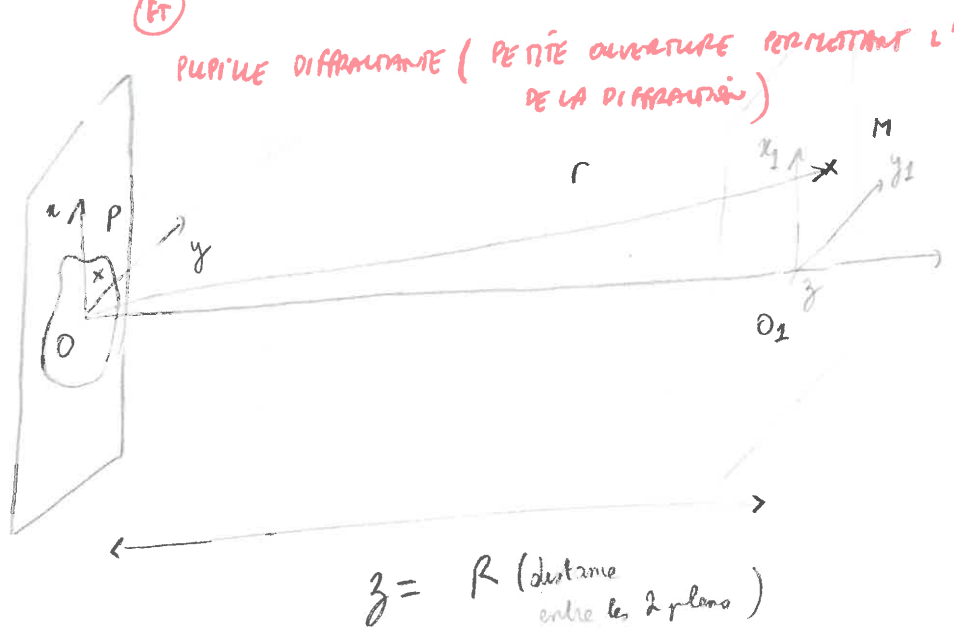 ET
PUPILLE DIFFRACTANTE ( PETITE OUVERTURE PERMETTANT L'
DE LA DIFFRACTION )
M
x1
r
y1
x
P
y
O
z
O1
z = R (distance
entre les 2 plans )